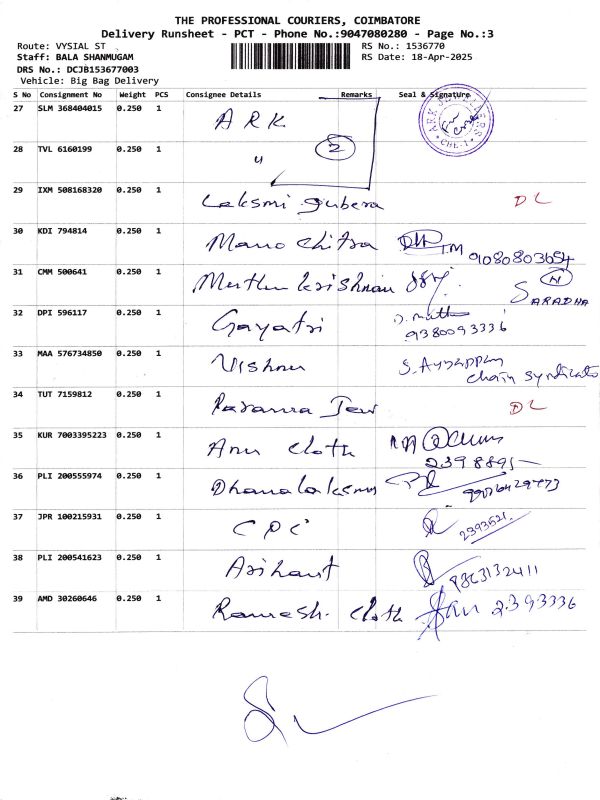 THE PROFESSIONAL COURIERS, COIMBATORE
Delivery Runsheet - PCT - Phone No.:9047080280 - Page No.:3
Route: VYSIAL ST
RS No.: 1536770
Staff: BALA SHANMUGAM
RS Date: 18-Apr-2025
DRS No.: DCJB153677003
Vehicle: Big Bag Delivery
S No Consignment No Weight PCS Consignee Details Remarks Seal & Signature
27 SLM 368404015 0.250 1 ARK
28 TVL 6160199 0.250 1 〃 2
29 IXM 508168320 0.250 1 Laksmi gubera DL
30 KDI 794814 0.250 1 Mano Chitra 9080803654
31 CMM 500641 0.250 1 Muthu krishnan N SARADHA
32 DPI 596117 0.250 1 Gayatri
9380093336
33 MAA 576734850 0.250 1 Vishnu S. Ayyappan
chain syndicate
34 TUT 7159812 0.250 1 DL
35 KUR 7003395223 0.250 1 Anu cloth
36 PLI 200555974 0.250 1 Dhanalaksmy
37 JPR 100215931 0.250 1 CPC 2393621
38 PLI 200541623 0.250 1 Arihant
39 AMD 30260646 0.250 1 Ramesh. cloth 2393336